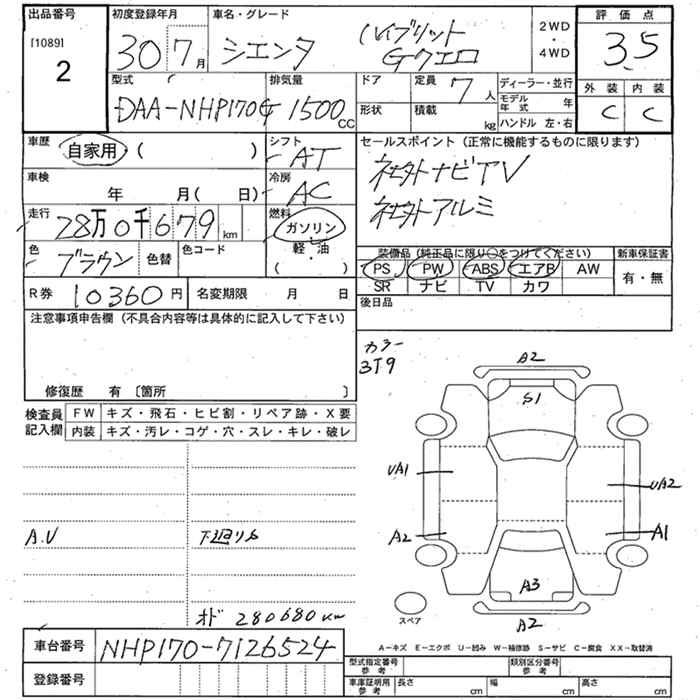 出品番号 初度登録年月 車名・グレード 2WD ・ 4WD 評価点
[1089] 2 30年7月 シエンタ ハイブリット Gクエロ 3.5
型式 排気量 ドア 定員 7人 ディーラー・並行 外装 内装
DAA-NHP170G 1500cc 形状 積載 kg モデル年式 年 C C
ハンドル 左・右
車歴 自家用 ( ) シフト AT セールスポイント(正常に機能するものに限ります)
車検 年 月( 日) 冷房 AC 社外ナビTV
社外アルミ
走行 28万0千679km 燃料 ガソリン ・ 軽・油 ( )
色 ブラウン 色替 色コード
装備品(純正品に限り○をつけてください) 新車保証書
PS PW ABS エアB AW 有・無
SR ナビ TV カワ
R券 10360円 名変期限 月 日 後日品
注意事項申告欄(不具合内容等は具体的に記入して下さい)
修復歴 有〔箇所 〕
検査員記入欄 FW キズ・飛石・ヒビ割・リペア跡・X要
内装 キズ・汚レ・コゲ・穴・スレ・キレ・破レ
カラー
3T9
A2
S1
UA1
UA2
A.U 下廻りS
A2
A1
A3
スペア
A2
オド 280680km
車台番号 NHP170-7126524
登録番号
A-キズ E-エクボ U-凹み W-補修跡 S-サビ C-腐食 XX-取替済
型式指定番号 参考 類別区分番号 参考
車庫証明用 参考 長さ cm 幅 cm 高さ cm